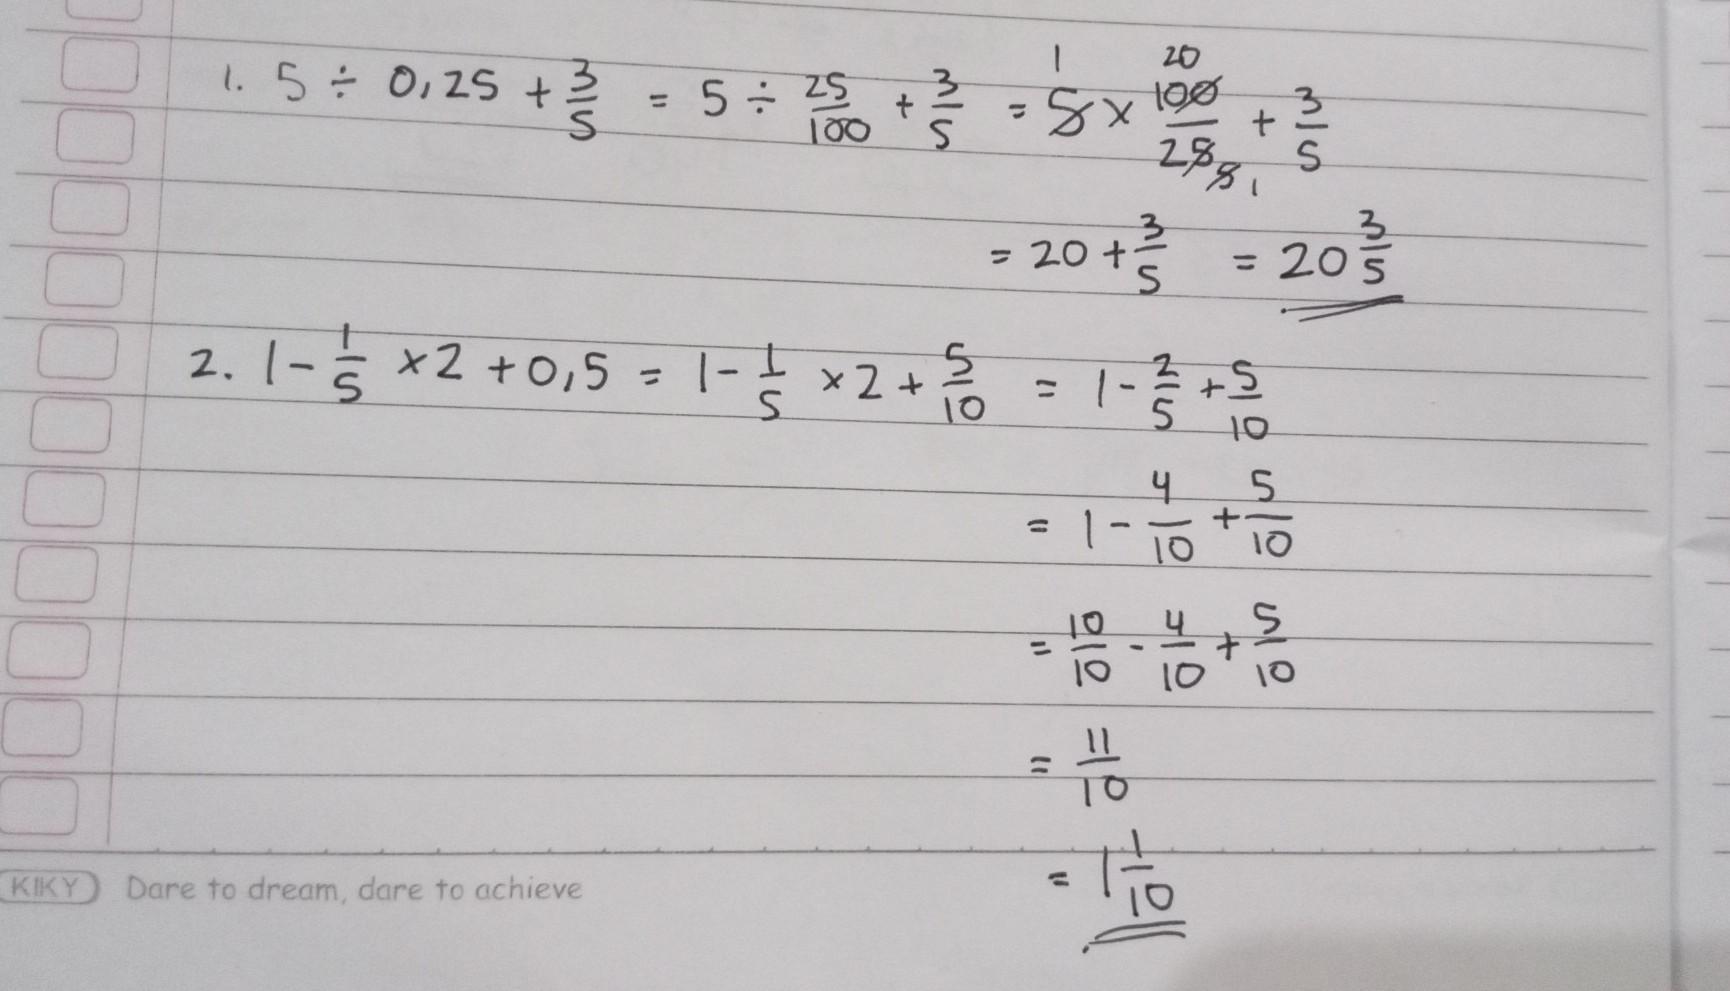 1. 5 ÷ 0,25 + 3/5 = 5 ÷ 25/100 + 3/5 = 5 1 × 100 20/25 5 1 + 3/5
= 20 + 3/5 = 20 3/5
2. 1 - 1/5 × 2 + 0,5 = 1 - 1/5 × 2 + 5/10 = 1 - 2/5 + 5/10
= 1 - 4/10 + 5/10
= 10/10 - 4/10 + 5/10
= 11/10
= 1 1/10
KIKY Dare to dream, dare to achieve